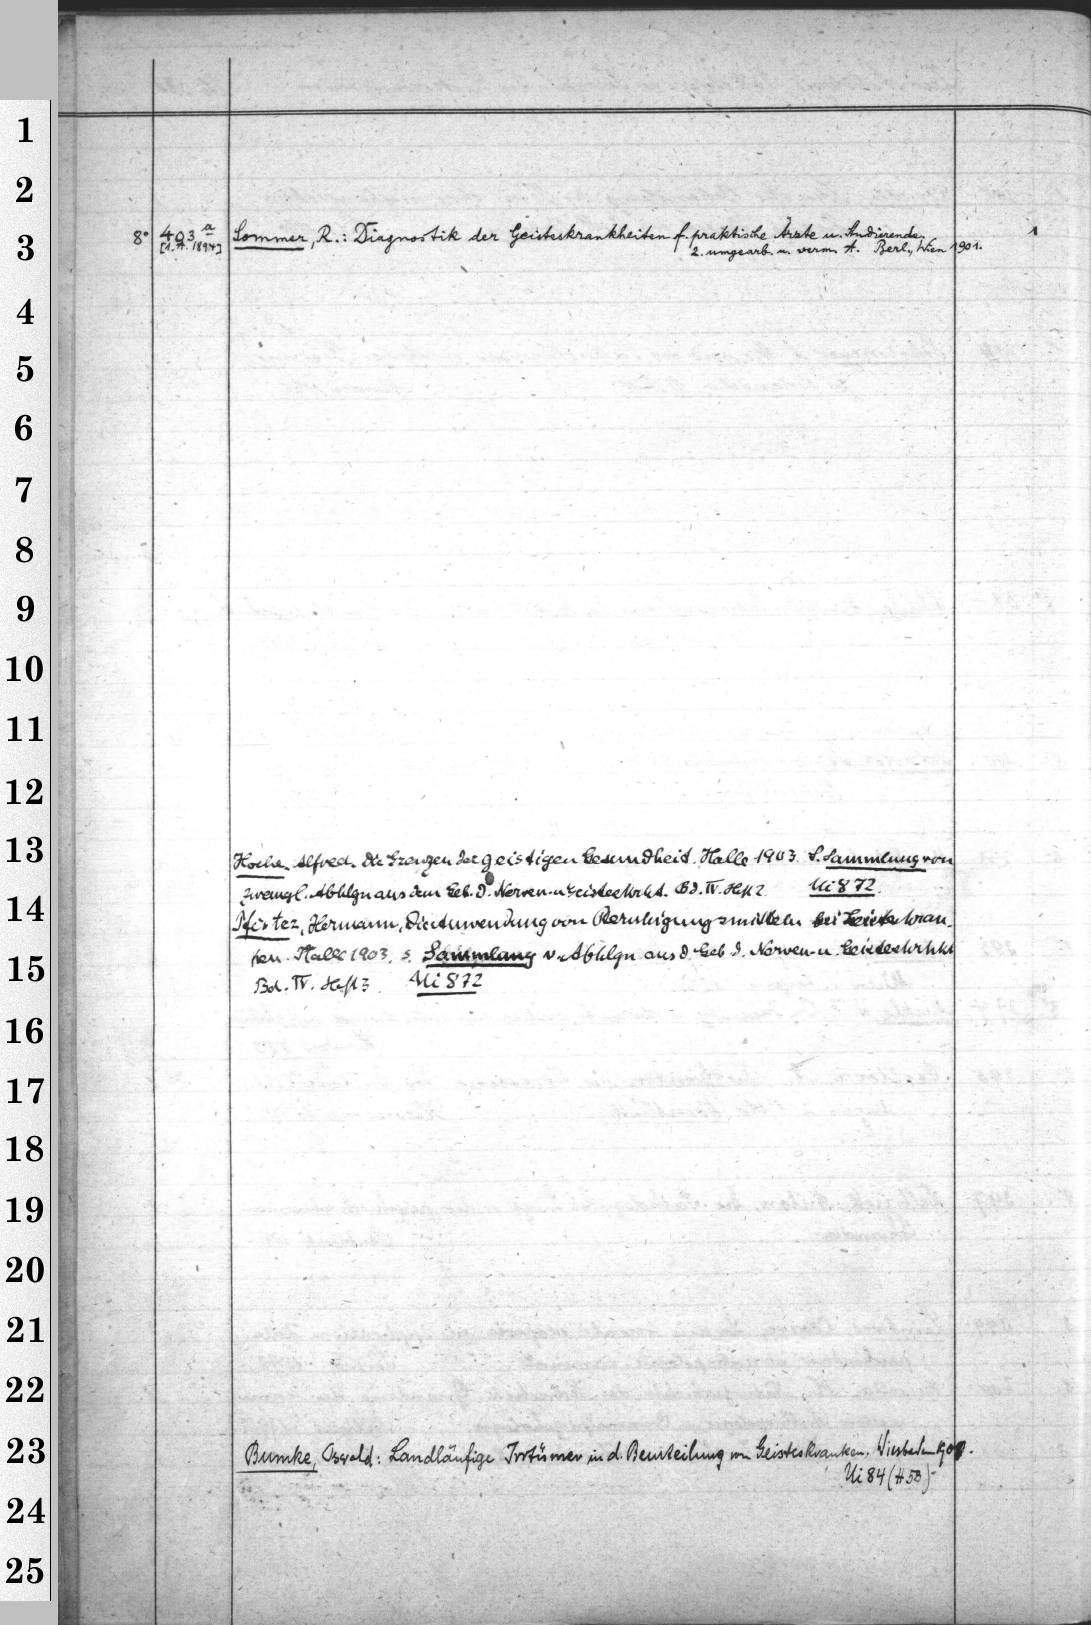 1
2
3
4
5
6
7
8
9
10
11
12
13
14
15
16
17
18
19
20
21
22
23
24
25
8° 403 a Sommer, R.: Diagnostik der Geisteskrankheiten f. praktische Ärzte u. Studierende. 1
[1. A. 1894] 2. umgearb. u. verm. A. Berl., Wien 1901.
Hoche Alfred. Die Grenzen der geistigen Gesundheit. Halle 1903. S. Sammlung von
zwangl. Abhlgn aus dem Geb. d. Nerven- u. Geisteskrkt. Bd. IV. Heft 2. Ui 872.
Pfister, Hermann, Die Anwendung von Beruhigungsmitteln bei Geisteskran-
ken. Halle 1903. s. Sammlung v. Abhlgn aus d. Geb. d. Nerven- u. Geisteskrkht
Bd. IV. Heft 3. Ui 872
Bumke, Oswald: Landläufige Irrtümer in d. Beurteilung von Geisteskranken. Wiesbaden 1908.
Ui 84 (H 58)